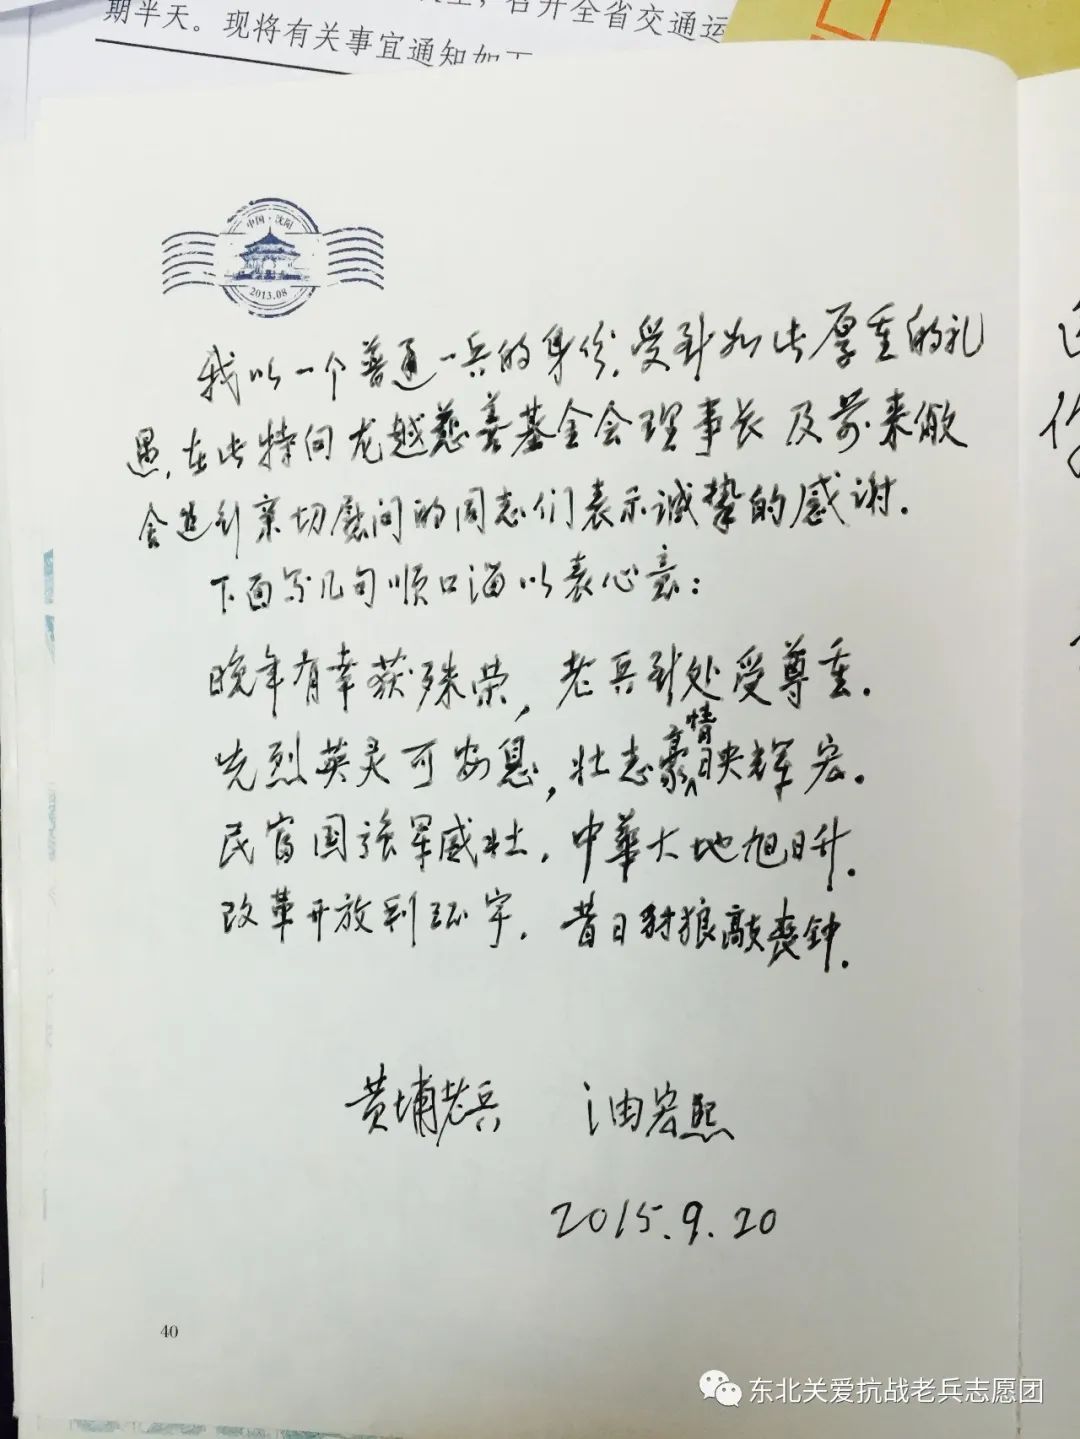 召开全省交通运
期半天。现将有关事宜通知如下
中国·沈阳
2013.08
我以一个普通一兵的身份，受到如此厚重的礼
遇，在此特向龙越慈善基金会理事长及前来做
会 亲切慰问的同志们表示诚挚的感谢．
下面写几句顺口溜以表心意：
晚年有幸获殊荣，老兵到处受尊重．
先烈英灵可安息，壮志豪情映辉宏．
民富国强军威壮．中華大地旭日升．
改革开放到环宇．昔日豺狼敲丧钟．
黄埔老兵 油宏熙
2015.9.20
40
东北关爱抗战老兵志愿团